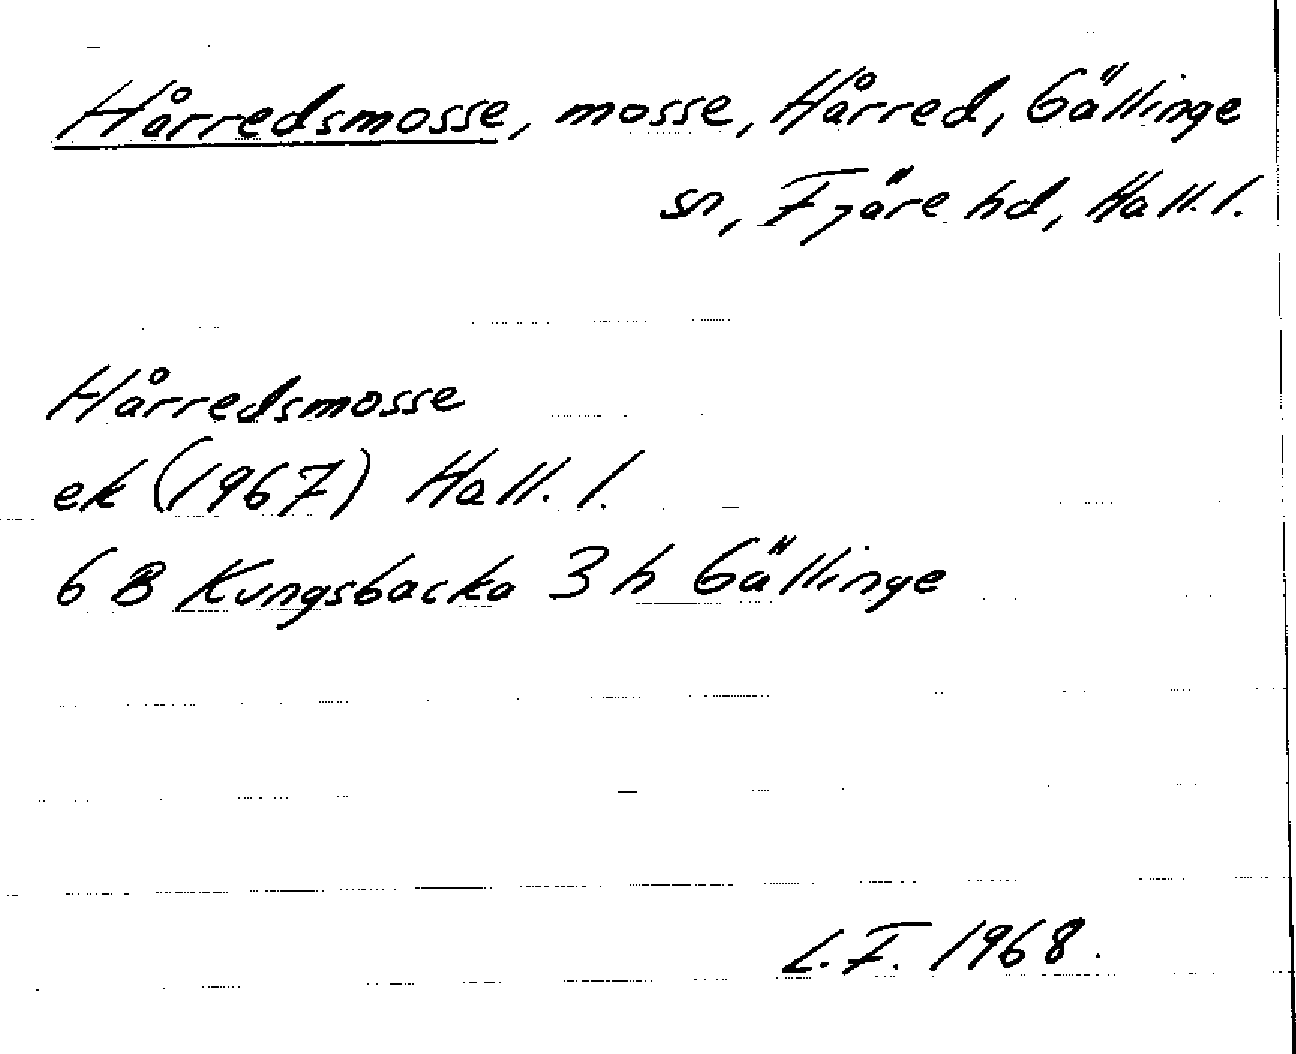 Hårredsmosse, mosse, Hårred, Gällinge
sn, Fjäre hd, Hall. l.
Hårredsmosse
ek (1967) Hall. l.
6 B Kungsbacka 3 h Gällinge
L.F. 1968.